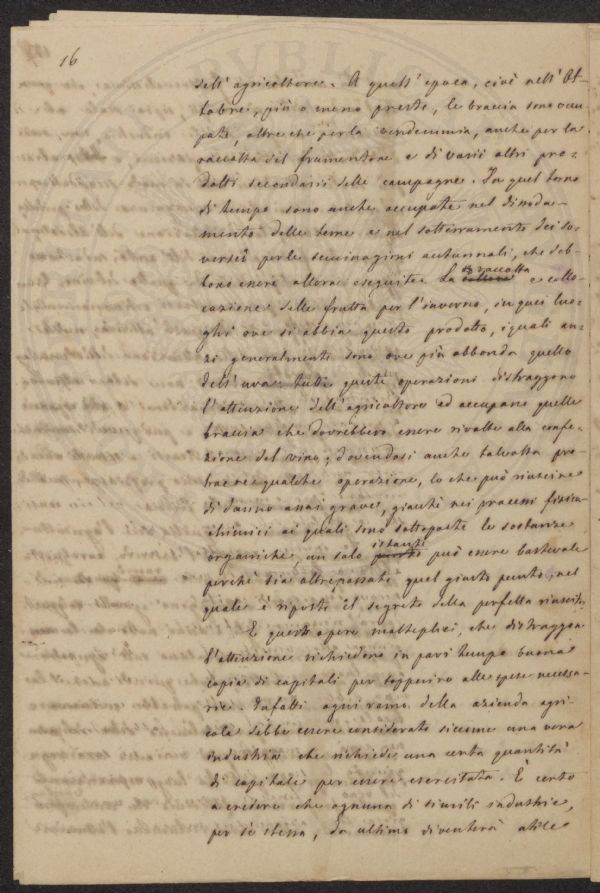 16
dell'agricoltore. A quell'epoca, cioè nell'Ot-
tobre, più o meno presto, le braccia sono occu
pate, oltre che per la vendemmia, anche per la
raccolta del frumentone e di varii altri pro-
dotti secondarii delle campagne. In quel torno
di tempo sono anche occupate nel dimoda-
mento delle terre e nel sotterramento dei so-
versci per le seminagioni autunnali, che deb-
bono essere allora eseguite. La raccolta e collo-
cazione delle frutta per l'inverno, in quei luo-
ghi ove si abbia questo prodotto, i quali an-
zi generalmente sono ove più abbonda quello
dell'uva: tutte queste operazioni distraggono
l'attenzione dell'agricoltore ad occupare quelle
braccia che dovrebbero essere rivolte alla confe-
zione del vino; dovendosi anche talvolta pro-
trarre qualche operazione, lo che può riuscire
di danno assai grave, giacchè nei processi fisico-
chimici ai quali sono sottoposte le sostanze
organiche, un solo istante può essere bastevole
perchè sia oltrepassato quel giusto punto, nel
quale è riposto il segreto della perfetta riuscita.
E queste opere molteplici, che distraggon
l'attenzione richiedono in pari tempo buona
copia di capitali per sopperire alle spese necessa-
rie. Infatti ogni ramo della azienda agri-
cola debbe essere considerato siccome una vera
industria che richiede una certa quantità
di capitale per essere esercitata. È certo
a credere che ognuna di simili industrie,
per sè stessa, da ultimo diventerà utile